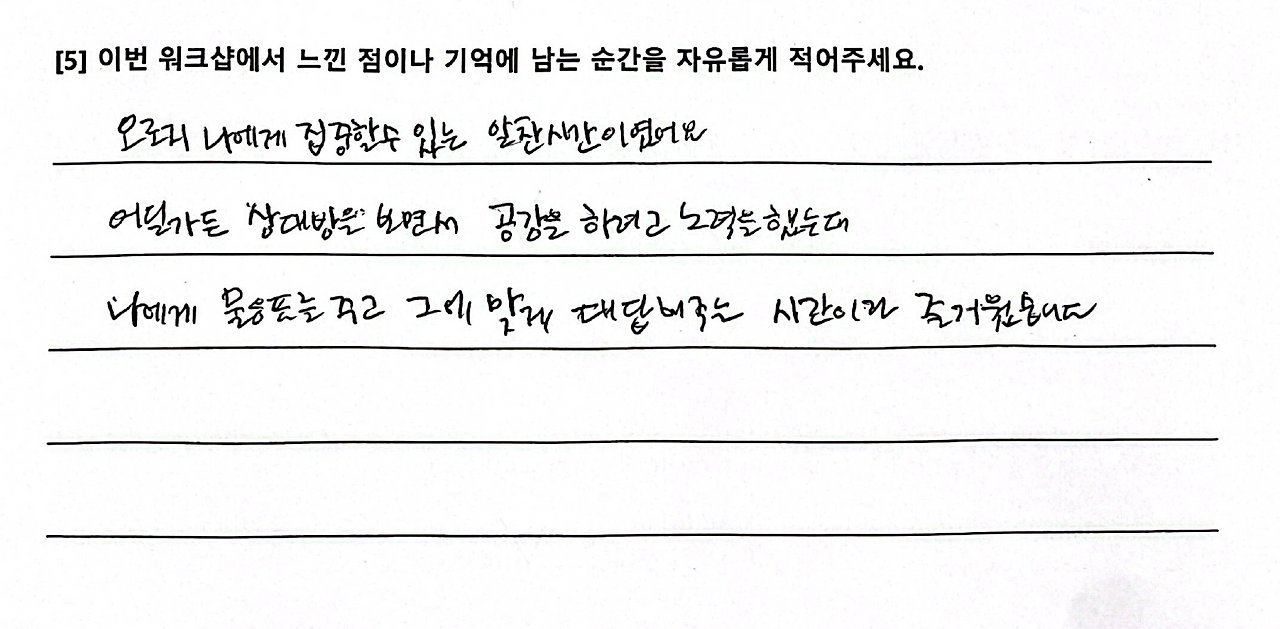 [5] 이번 워크샵에서 느낀 점이나 기억에 남는 순간을 자유롭게 적어주세요.
오로지 나에게 집중할수 있는 알찬시간이였어요
어딜가든 "상대방을" 보면서 공감을 하려고 노력을했는데
나에게 물음표를 주고 그에 맞춰 대답해주는 시간이라 즐거웠습니다